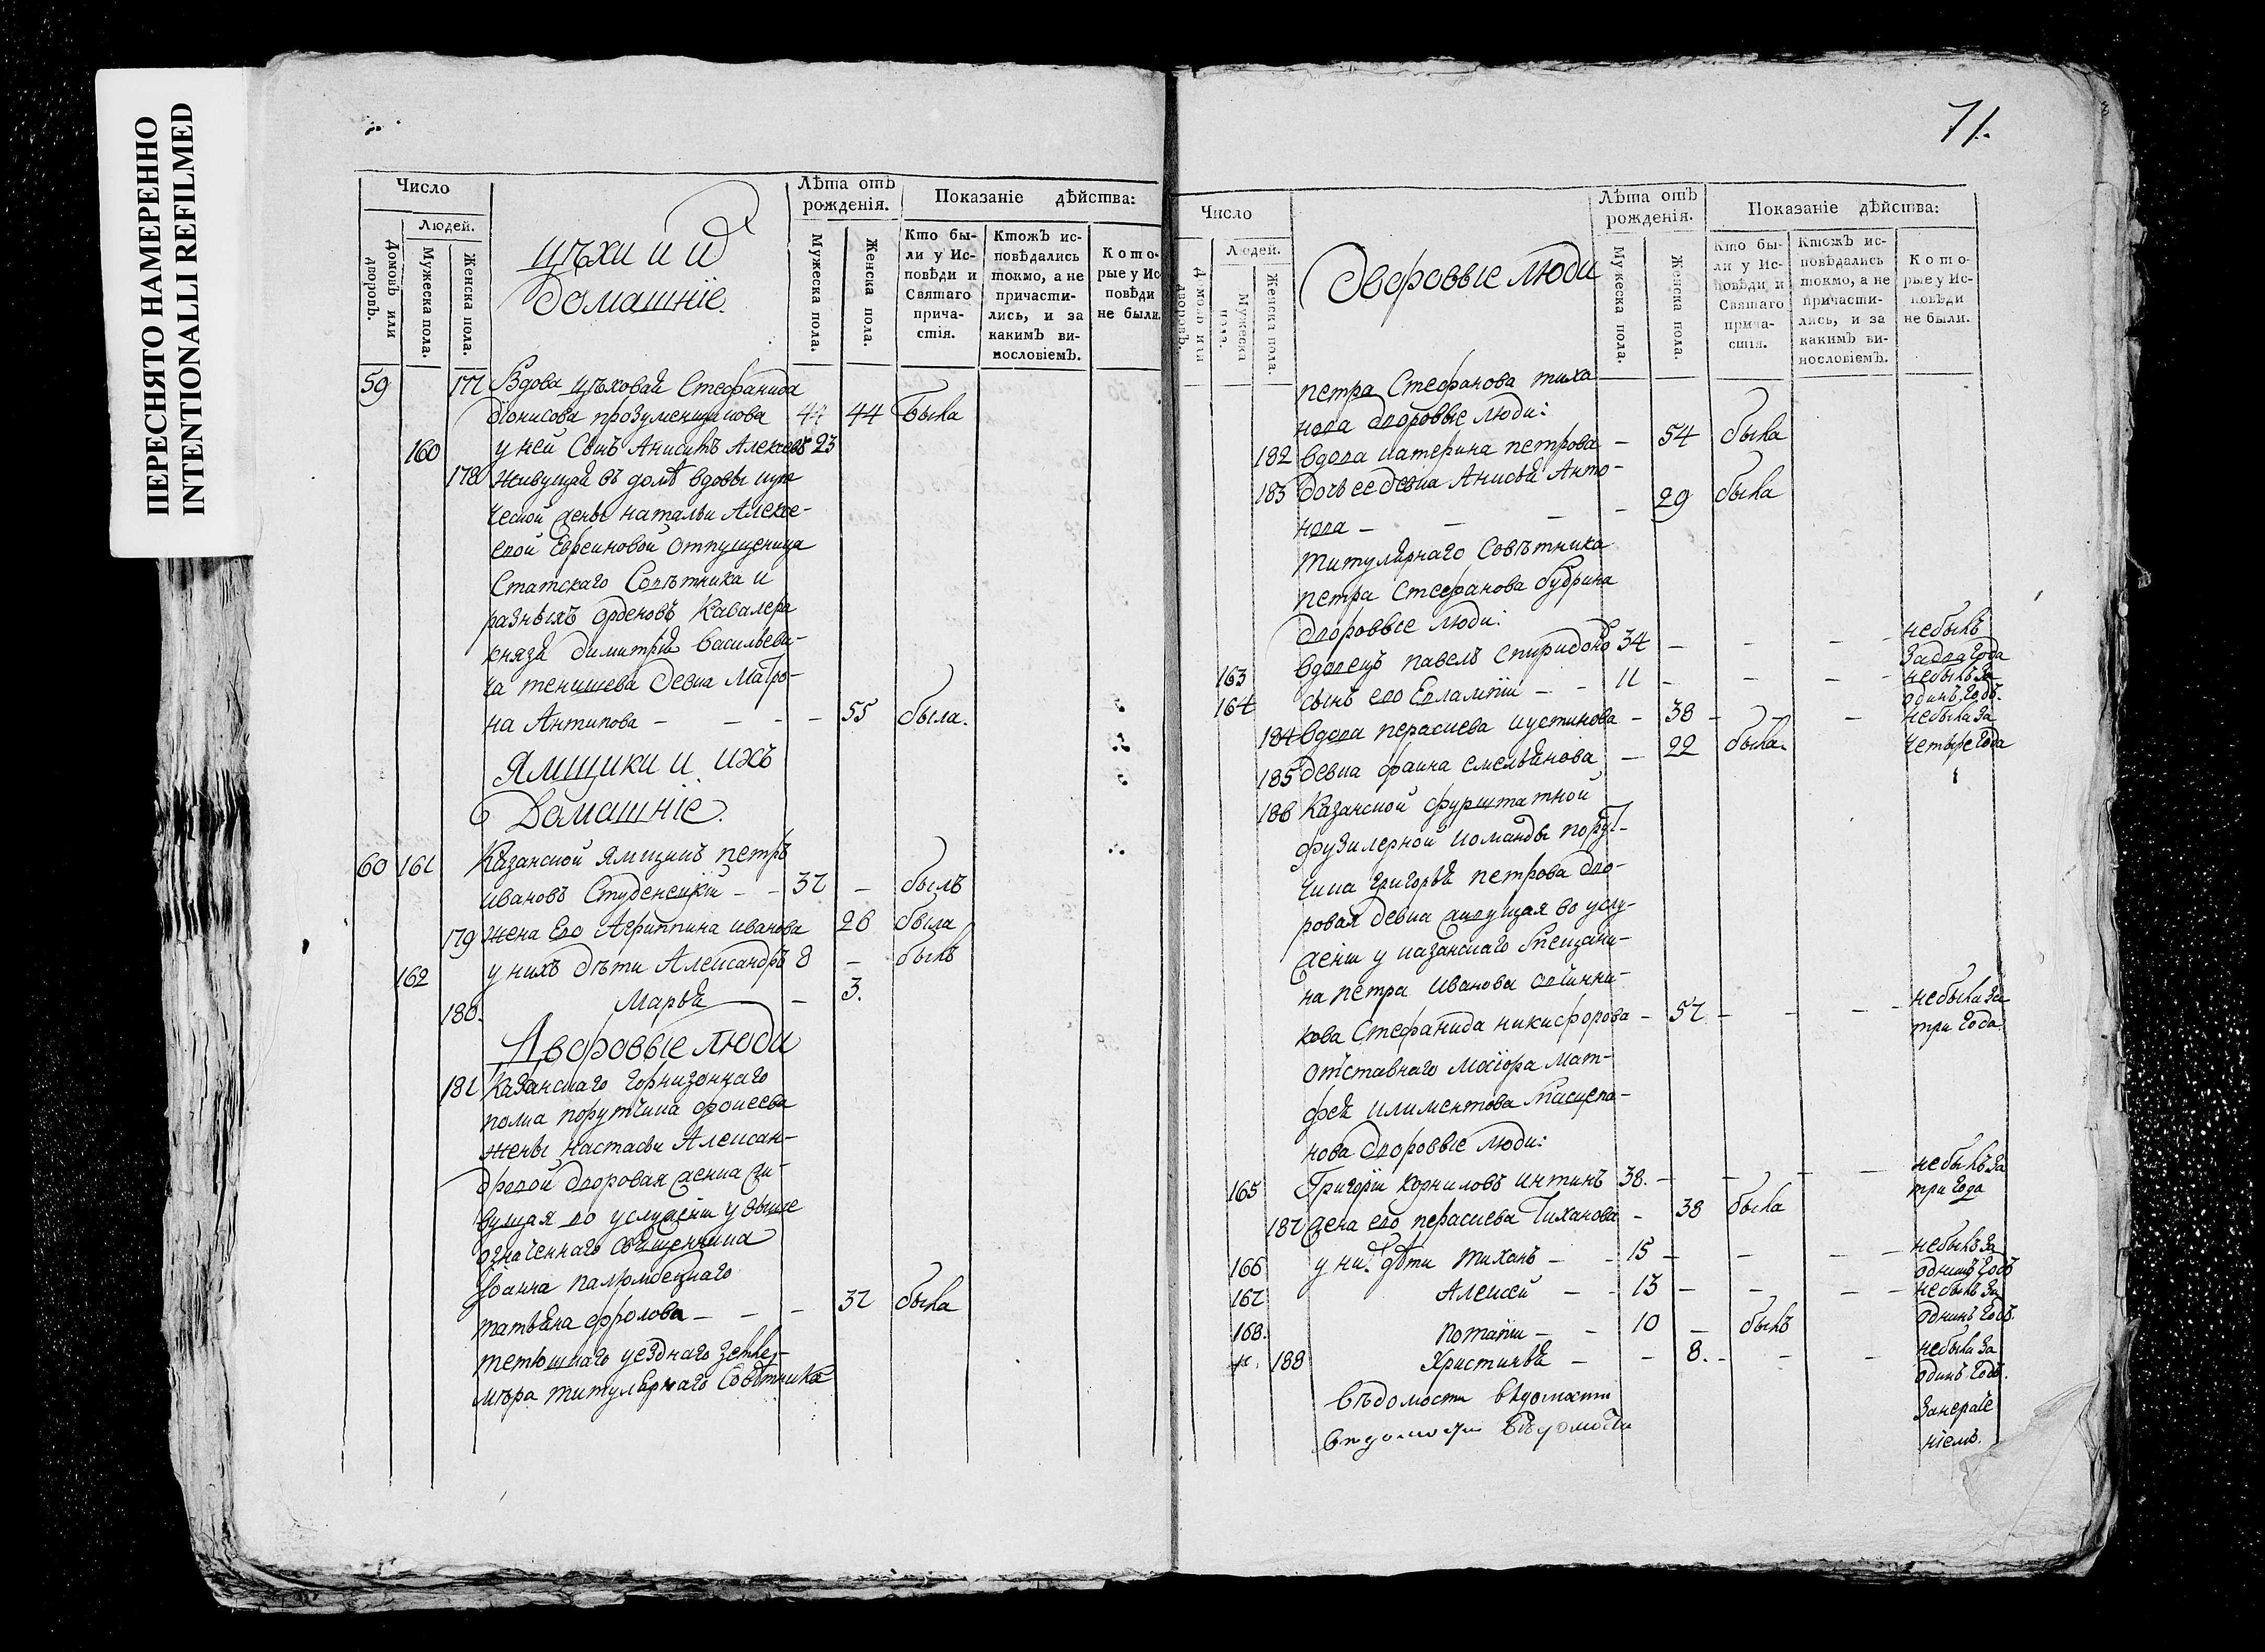 ПЕРЕСНЯТО НАМЕРЕННО
INTENTIONALLI REFILMED
Число
Людей.
Домовъ или дворовъ.
Мужеска пола.
Женска пола.
цѣхи и и
домашніе.
Лѣта отъ рожденія.
Мужеска пола.
Женска пола.
Показаніе дѣйства:
Кто были у Исповѣди и Святаго причастія.
Ктожъ исповѣдались токмо, а не причастились, и за какимъ винословіемъ.
Которые у Исповѣди не были.
59 177 Вдова цѣховая Стефанида
Діонисова прозументщикова 44 44 была
160 у ней Сынъ Анисимъ Алексеевъ 23
178 живущая въ домѣ вдовы купе
ческой жены натальи Алексе-
евой Евреиновой отпущеница
Статскаго Совѣтника и
разныхъ Орденовъ Кавалера
князя димитрія васильеви-
ча тенишева девка Матро-
на Антипова - - - - 55 была.
Ямщики и ихъ
Домашніе.
60 161 Казанской ямщикъ петръ
ивановъ Студенецкій - - 37 - былъ
179 жена Его Агриппина иванова 26 была
162 у нихъ дѣти Александръ 8 - былъ
180. Марья - 3.
Дворовые люди
181 Казанскаго Горнизоннаго
полка порутчика фокеева
жены настасьи Алексан-
дровой дворовая женка жи-
вущая во услуженіи у выше
означеннаго священника
Іоанна
татьяна фролова - - - 37 была
тетюшнаго уезднаго землe-
мѣра титулярнаго Совѣтника
71.
Число
Людей.
Домовъ или дворовъ.
Мужеска пола.
Женска пола.
Дворовые люди
Лѣта отъ рожденія.
Мужеска пола.
Женска пола.
Показаніе дѣйства:
Кто были у Исповѣди и Святаго причастія.
Ктожъ исповѣдались токмо, а не причастились, и за какимъ винословіемъ.
Которые у Исповѣди не были.
петра Стефанова тиха
нова дворовые люди:
182 вдова катерина петрова - 54 была
183 дочь ее девка Анисья Анто-
нова - - - - 29 была
титулярнаго Совѣтника
петра Стефанова бубрина
дворовые люди:
163 вдовецъ павелъ спиридоно 34 - - - небылъ за два года
164 сынъ его Евлампіи - - 11 - - - небылъ за одинъ годъ.
184 вдова пераскева иустинова - 38 - - - небыла за четыре года
185 девка фаина емельянова - 22 была.
186 Казанской фурштатной
фузилерной команды пору-
чика григорья петрова дво-
ровая девка живущая во услу-
женіи у казанскаго мещани-
на петра иванова
кова Стефанида никифорова - 57 - - - небыла за три года
отставнаго Маіора Мат-
фея климентова
нова дворовые люди:
165 Григоріи корниловъ 38. - - - - небылъ за три года
187 жена его пераскева Тиханова - 38 была
166 у них дѣти тиханъ - - 15 - - - небылъ за одинъ годъ
167 Алексей - - 13 - - - небылъ за одинъ годъ.
168. потапіи - - 10 - былъ
188 Христинья - - 8. - - - небыла за одинъ годъ.
вѣдомости вѣдомости
ведомости Вѣдомости